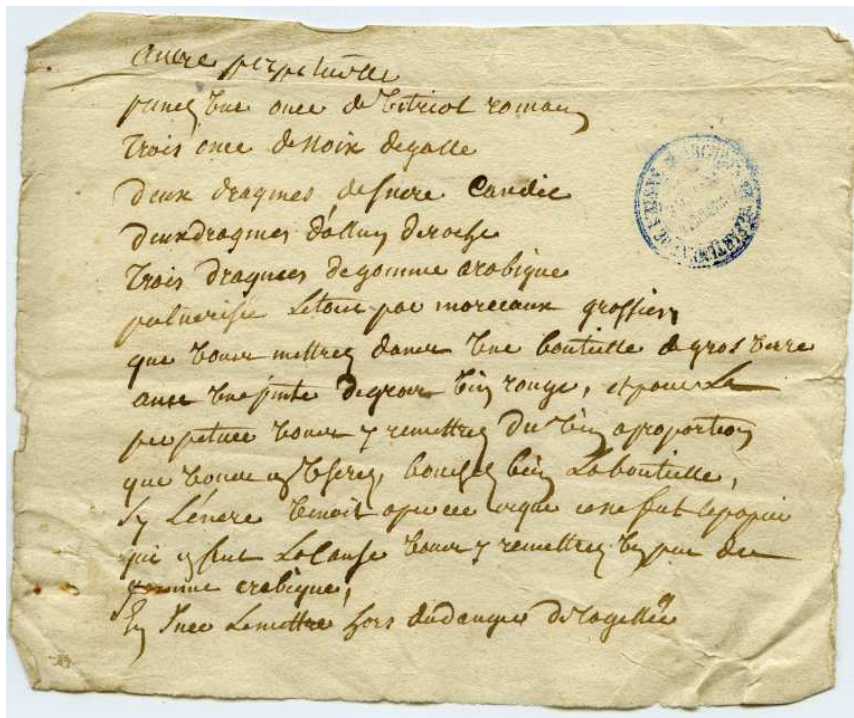 ancre perpetuelle
prenez une once de vitriol romain
trois once de noix degalle
deux dragmes de sucre candie
deux dragmes d'allun de roche
trois dragmes de gomme arabique
pulverisée le tout par morceaux grossiers
que vous mettrez dans une bouteille de gros verre
avec une pinte de gros vin rouge, et pour la
perpetuer vous y remettrez du vin aproportion
que vous en userez, bouchez bien la bouteille,
sy l'encre venoit a ce que ce ne fut le papier
qui en fut la cause vous y remettrez un peu de
gomme arabique,
la mettre hors du danger de la gellée